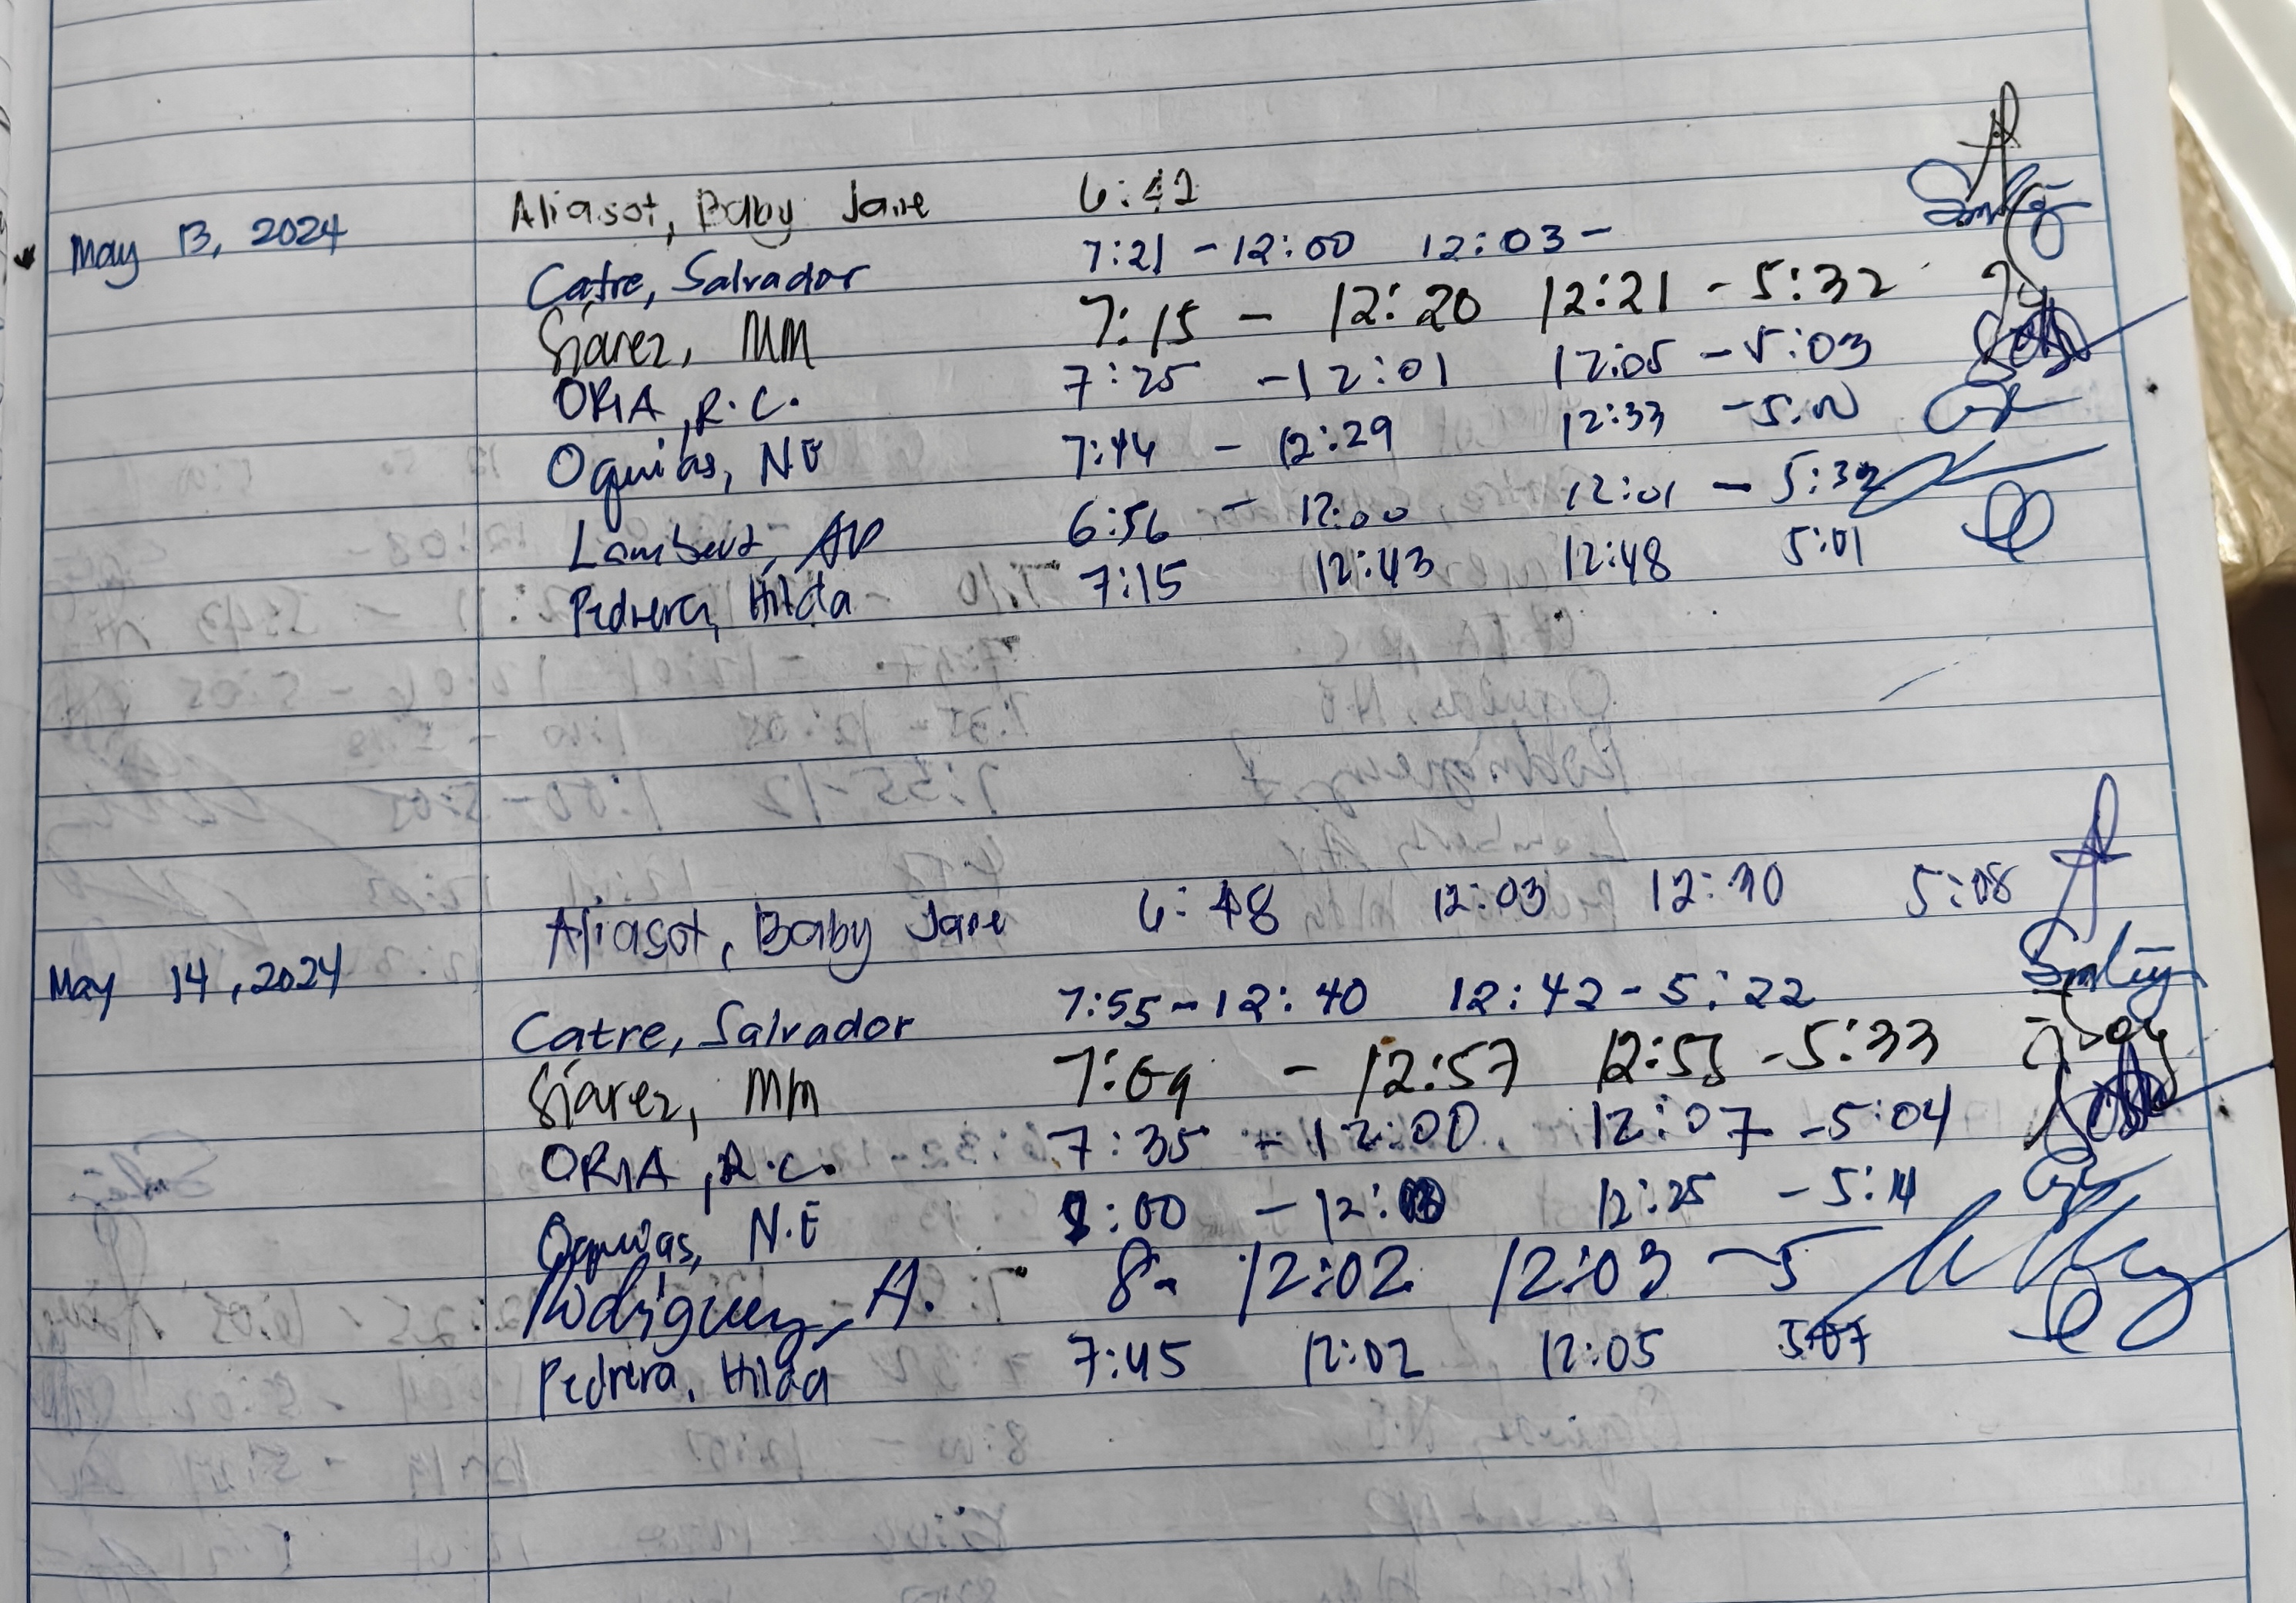 Aliasot, Baby Jane 6:42
May 13, 2024
Catre, Salvador 7:21 - 12:00 12:03 -
Siarez, MM 7:15 - 12:20 12:21 - 5:32
ORIA, R.C. 7:25 - 12:01 12:05 - 5:03
Oquias, NE 7:44 - 12:29 12:33 - 5:00
Lambert, AP 6:56 - 12:00 12:01 - 5:32
Pedrera, Hilda 7:15 12:43 12:48 5:01
Aliasot, Baby Jane 6:48 12:03 12:30 5:08
May 14, 2024
Catre, Salvador 7:55 - 12:40 12:42 - 5:22
Siarez, MM 7:09 - 12:57 - 5:33
ORIA, R.C. 7:35 - 12:00 12:07 - 5:04
Oquias, N.E 8:00 - 12:25 - 5:14
Rodriguez, A. 8- 12:02 12:03 - 5
Pedrera, Hilda 7:45 12:02 12:05 5:07